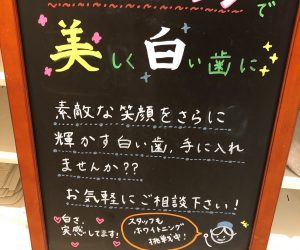 で
美しく白い歯に
素敵な笑顔をさらに
輝かす白い歯,手に入れ
ませんか??
お気軽にご相談下さい!
白さ、
実感してます!
スタッフも
ホワイトニング
挑戦中!